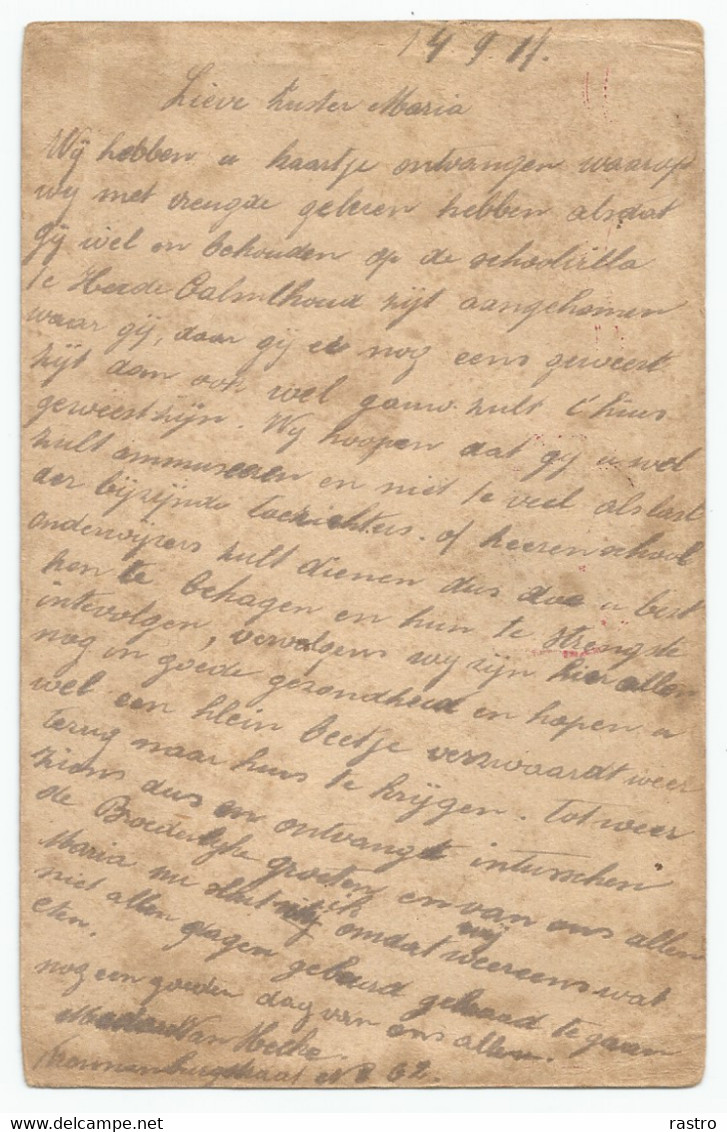 14 9 11.
Lieve Zuster Maria
Wij hebben u kaartje ontvangen waarop
wij met vreugde gelezen hebben alsdat
gij wel en behouden op de schoolvilla
te Heide Calmthoud zijt aangekomen
waar gij, daar gij er nog eens geweest
zijt dan ook wel gauw zult t'huis
geweest zijn. Wij hoopen dat gij u wel
zult ammuseeren en niet te veel als last
der bijzijnde toezichters of heeren school
onderwijzers zult dienen dus doe u best
hen te behagen en hun te strengste
intevolgen, vervolgens wij zijn hier allen
nog in goede gezondheid en hopen u
wel een klein beetje verzwaardt weer
terug naar huis te krijgen. Tot weer
ziens dus en ontvangt intusschen
de Broederlijke groeten en van ons allen
Maria nu sluit ik omdat weereens wat
niet allen dagen gebeurd gehaad te gaan
eten. wij
nog een goeden dag van ons allen.
Van Hecke
straat N° 62.
rastro